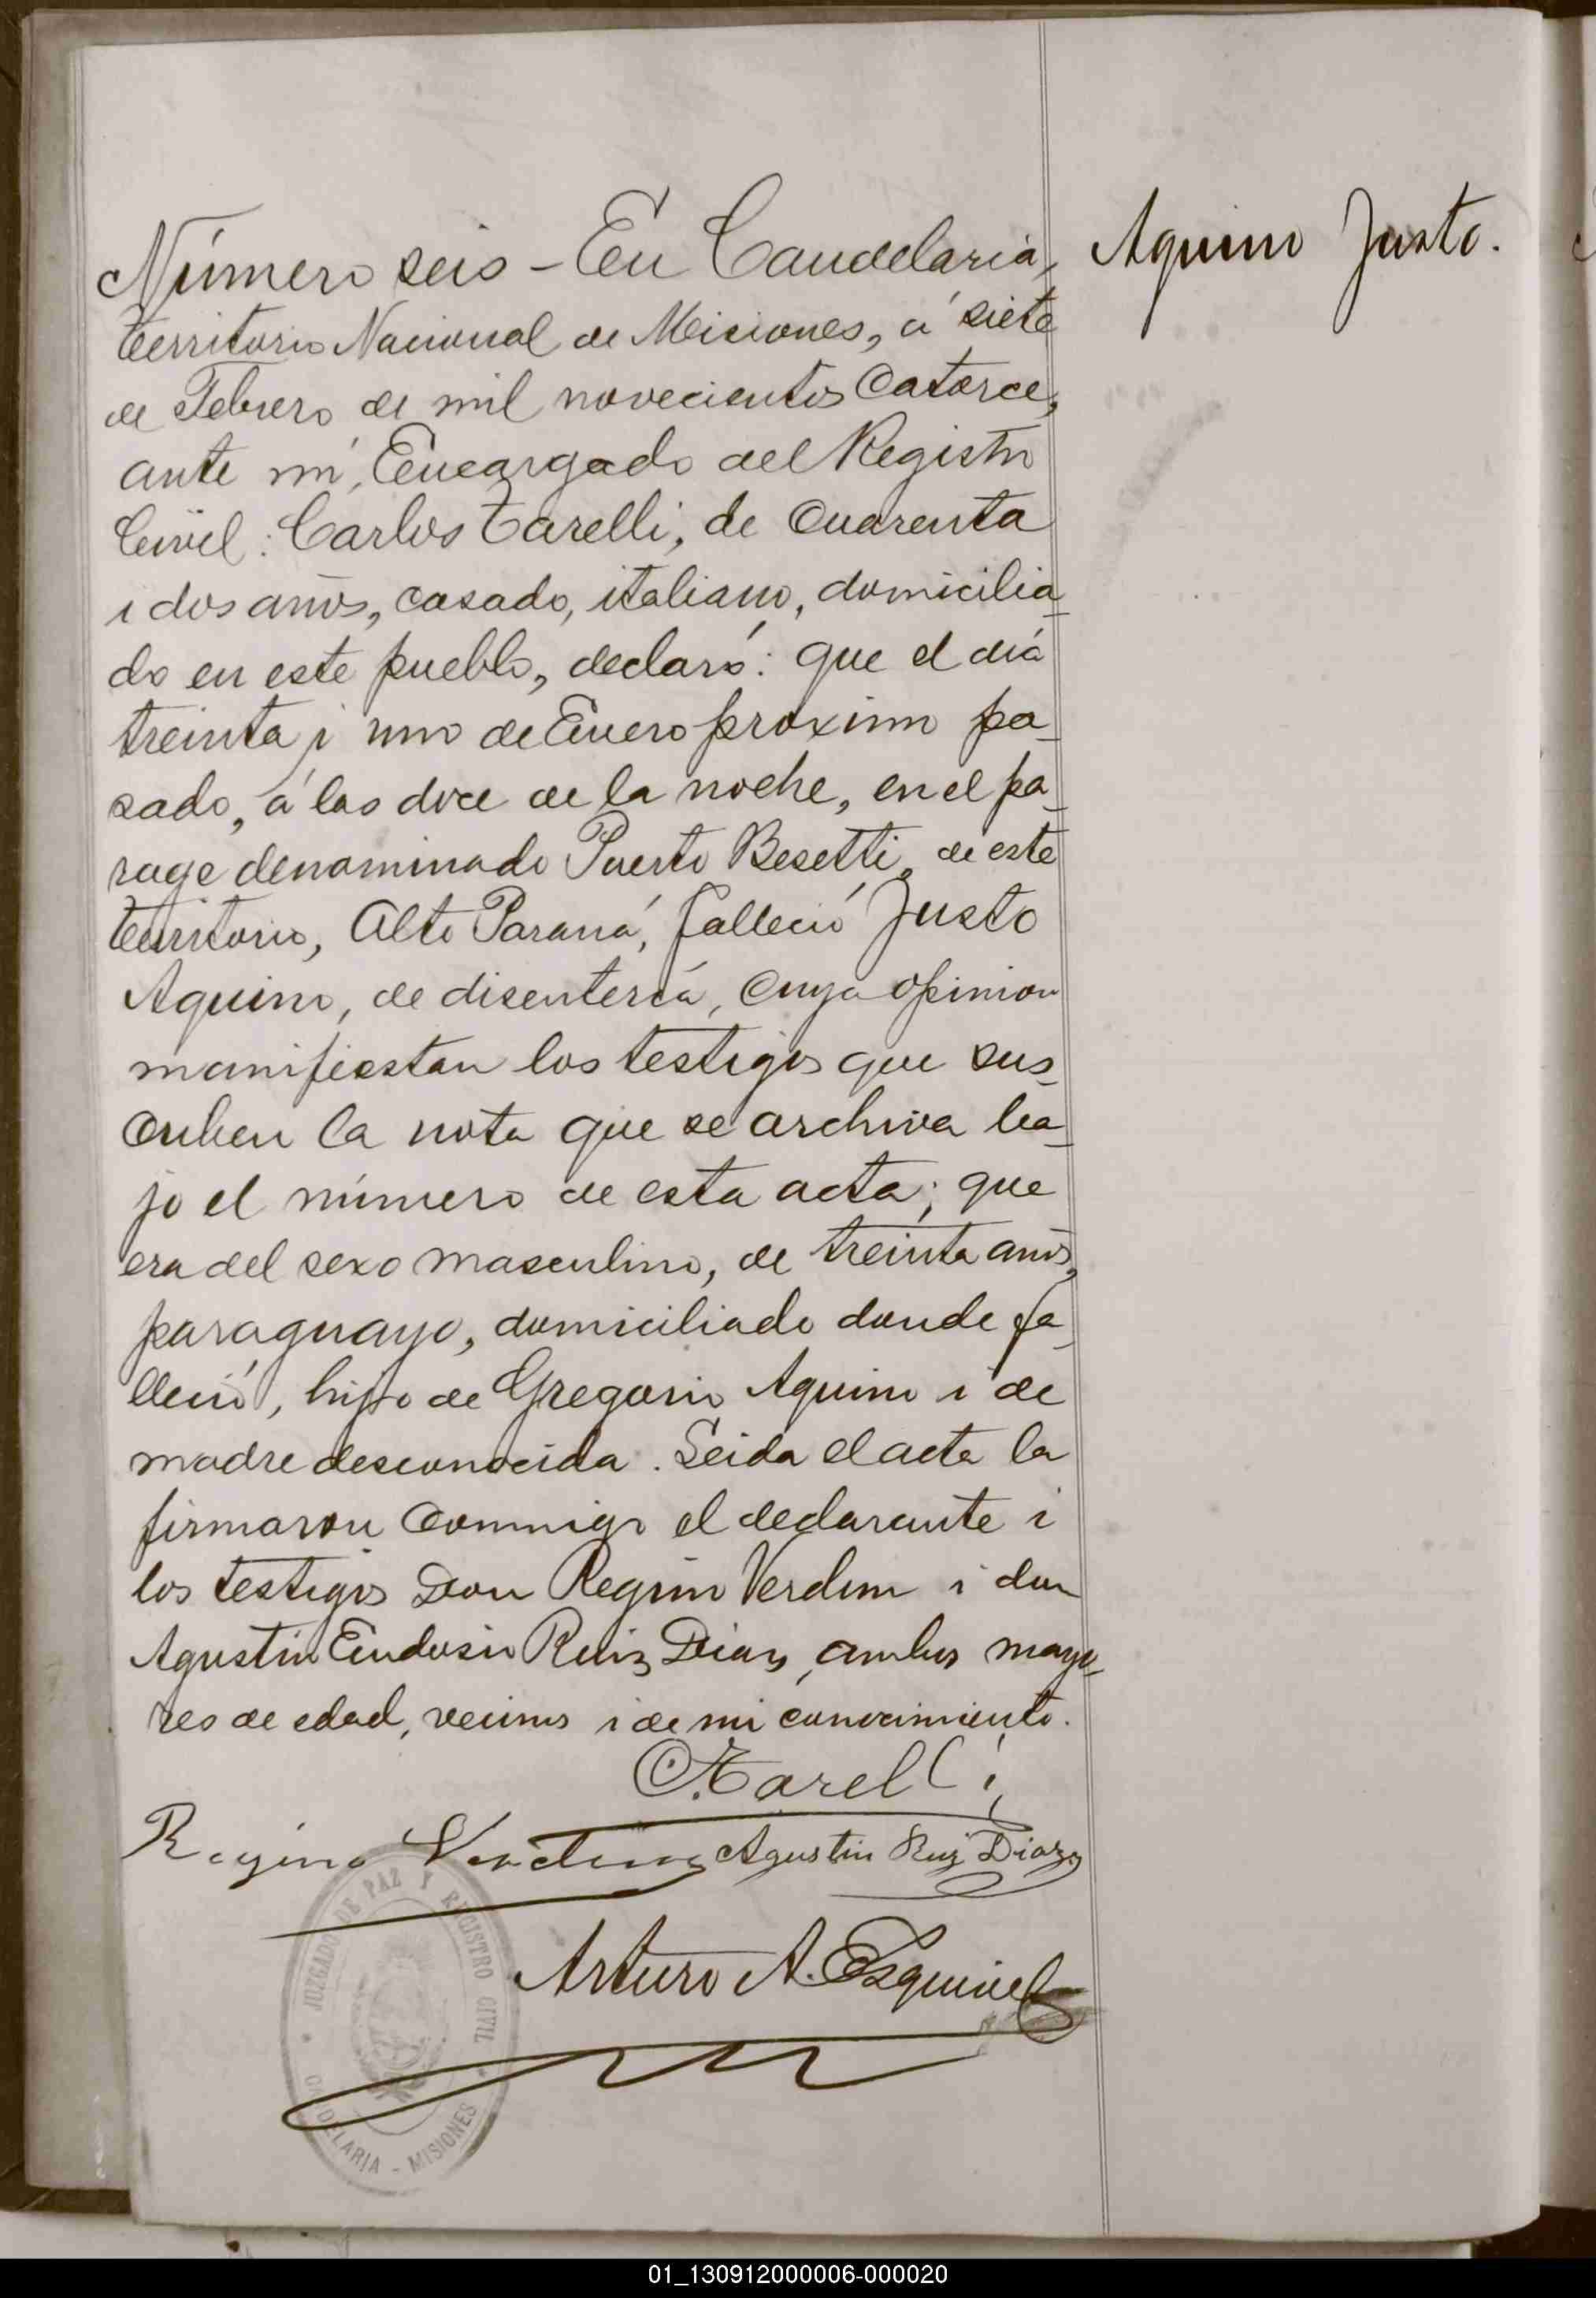 Aquino Justo.
Número seis - En Candelaria,
territorio Nacional de Misiones, á siete
de Febrero de mil novecientos catorce,
ante mí, Encargado del Registro
Civil: Carlos Tarelli, de cuarenta
i dos años, casado, italiano, domicilia-
do en este pueblo, declaró: que el día
treinta i uno de Enero proximo pa-
sado, á las doce de la noche, en el pa-
rage denominado Puerto Besetti, de este
territorio, Alto Paraná, falleció Justo
Aquino, de disentería, cuya opinion
manifiestan los testigos que sus-
criben la nota que se archiva ba-
jo el número de esta acta; que
era del sexo masculino, de treinta años,
paraguayo, domiciliado donde fa-
lleció, hijo de Gregorio Aquino i de
madre desconocida. Leida el acta la
firmaron conmigo el declarante i
los testigos Don Regino Verdun i don
Agustin Eudosio Ruiz Diaz, ambos mayo-
res de edad, vecinos i de mi conocimiento.
C. Tarelli
Regino Verdun Agustin Ruiz Diaz
Arturo A. Esquivel
JUZGADO DE PAZ Y REGISTRO CIVIL
CANDELARIA - MISIONES
01_130912000006-000020